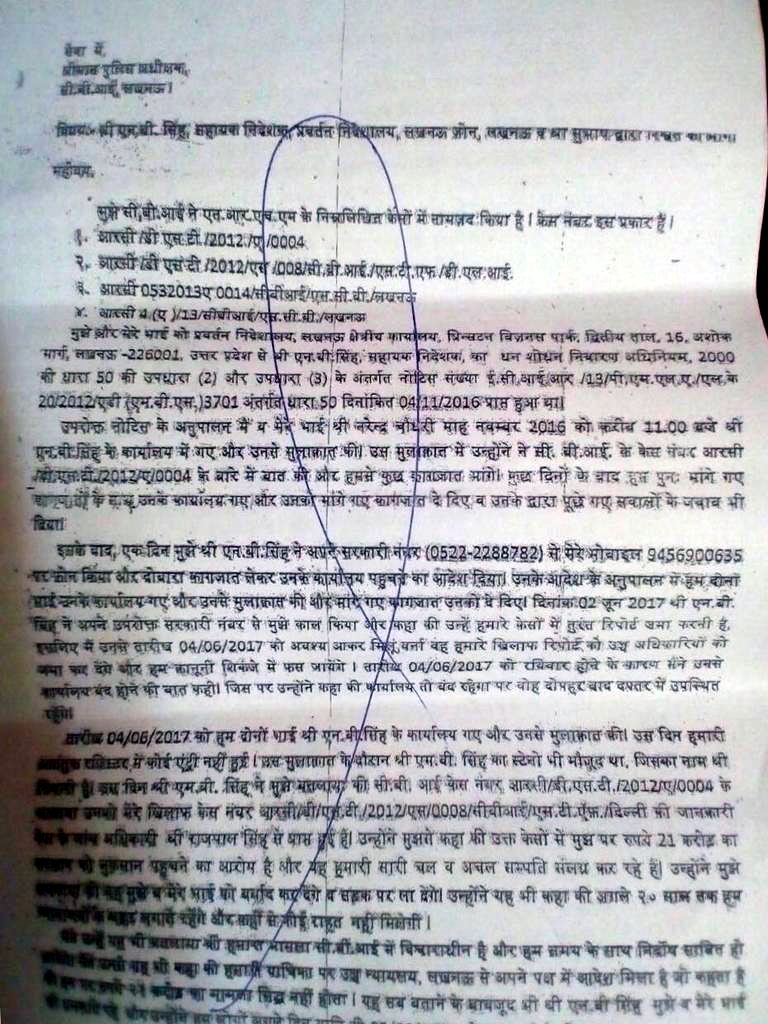 सेवा में,
श्रीमान पुलिस अधीक्षक,
सी.बी.आई, लखनऊ।
विषयः- श्री एन.बी. सिंह, सहायक निदेशक, प्रवर्तन निदेशालय, लखनऊ ज़ोन, लखनऊ व श्री सुभाष द्वारा रिश्वत का मांगना
महोदय,
मुझे सी.बी.आई ने एन.आर.एच.एम के निम्नलिखित केसों में नामजद किया है । केस नंबर इस प्रकार हैं।
१. आरसी/डी एस.टी./2012/ए/0004
२. आरसी/डी एस टी /2012/एस /008/सी.बी.आई./एस.टी.एफ /डी.एल.आई.
३. आरसी 0532013ए 0014/सीबीआई/एस.सी.बी./लखनऊ
४. आरसी (ए )/13/सीबीआई/एस.सी.बी./लखनऊ
मुझे और मेरे भाई को प्रवर्तन निदेशालय, लखनऊ क्षेत्रीय कार्यालय, प्रिन्सटन बिज़नस पार्क, द्वितीय ताल, 16, अशोक
मार्ग, लखनऊ -226001, उत्तर प्रदेश से श्री एन.बी.सिंह, सहायक निदेशक, का धन शोधन निवारण अधिनियम, 2000
की धारा 50 की उपधारा (2) और उपधारा (3) के अंतर्गत नोटिस संख्या ई.सी.आई.आर /13/पी.एम.एल.ए./एल.के
20/2012/एडी (एन.बी.एस.)3701 अंतर्गत धारा 50 दिनांकित 04/11/2016 प्राप्त हुआ था।
उपरोक्त नोटिस के अनुपालन में मैं व मेरे भाई श्री नरेन्द्र चौधरी माह नवम्बर 2016 को करीब 11.00 बजे श्री
एन.बी.सिंह के कार्यालय में गए और उनसे मुलाक़ात की। उस मुलाक़ात में उन्होंने ने सी. बी.आई. के केस नंबर आरसी
/डी.एस.टी./2012/ए/0004 के बारे में बात की और हमसे कुछ कागजात मांगे। कुछ दिनों के बाद हम पुनः मांगे गए
के उनके कार्यालय गए और उनको मांगे गए कागजात दे दिए व उनके द्वारा पूछे गए सवालों के जवाब भी
दिया।
इसके बाद, एक दिन मुझे श्री एन.बी.सिंह ने अपने सरकारी नंबर (0522-2288782) से मेरे मोबाइल 9456900635
पर फ़ोन किया और दोबारा कागजात लेकर उनके कार्यालय पहुचने का आदेश दिया। उनके आदेश के अनुपालन में हम दोनों
भाई उनके कार्यालय गए और उनसे मुलाक़ात की और मांगे गए कागजात उनको दे दिए। दिनांक 02 जून 2017 श्री एन.बी.
सिंह ने अपने उपरोक्त सरकारी नंबर से मुझे काल किया और कहा की उन्हें हमारे केसों में तुरंत रिपोर्ट जमा करनी है,
इसलिए में उनसे तारीख 04/06/2017 को अवश्य आकर मिलूं, वर्ना वह हमारे खिलाफ रिपोर्ट को उच्च अधिकारियों को
जमा कर देंगे और हम कानूनी शिकंजे में फस जायेंगे । तारीख 04/06/2017 को रविवार होने के कारण मैंने उनसे
कार्यालय बंद होने की बात कही। जिस पर उन्होंने कहा की कार्यालय तो बंद रहेगा पर वोह दोपहर बाद दफ्तर में उपस्थित
रहेंगे।
तारीख 04/06/2017 को हम दोनों भाई श्री एन.बी.सिंह के कार्यालय गए और उनसे मुलाक़ात की। उस दिन हमारी
रजिस्टर में कोई एंट्री नहीं हुई । उस मुलाक़ात के दौरान श्री एन.बी. सिंह का स्टेनो भी मौजूद था, जिसका नाम श्री
है। उस दिन श्री एन.बी. सिंह ने मुझे बतलाया की सी.बी. आई केस नंबर आरसी/डी.एस.टी./2012/ए/0004 के
उनको मेरे खिलाफ केस नंबर आरसी/डी/एस.टी./2012/एस/0008/सीबीआई/एस.टी.ऍफ़./दिल्ली की जानकारी
के जांच अधिकारी श्री राजपाल सिंह से प्राप्त हुई हैं। उन्होंने मुझसे कहा की उक्त केसों में मुझ पर रुपये 21 करोड़ का
को नुकसान पहुचने का आरोप है और वह हमारी सारी चल व अचल सम्पति संलग्न कर रहे हैं। उन्होंने मुझे
की वह मुझे व मेरे भाई को बर्बाद कर देंगे व सड़क पर ला देंगे। उन्होंने यह भी कहा की अगले २० साल तक हम
के चक्कर लगाते रहेंगे और कहीं से कोई राहत नहीं मिलेगी ।
मैंने उन्हें यह भी बतलाया की हमारा मामला सी.बी.आई में विचाराधीन है और हम समय के साथ निर्दोष साबित हो
उनसे यह भी कहा की हमारी याचिका पर उच्च न्यायलय, लखनऊ से अपने पक्ष में आदेश मिला है जो कहता है
की हम पर करोड़ का मामला सिद्ध नहीं होता । यह सब बताने के बावजूद भी श्री एन.बी सिंह मुझे व मेरे भाई